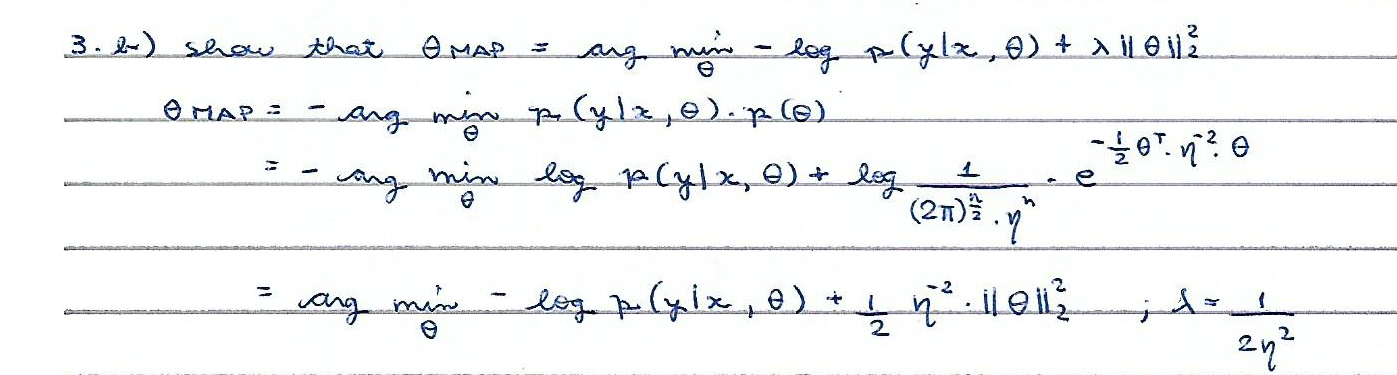 3. b) show that θ MAP = arg min_θ - log p(y|x, θ) + λ ||θ||₂²
θ MAP = - arg min_θ p(y|x, θ) · p(θ)
= - arg min_θ log p(y|x, θ) + log 1/((2π)^(n/2) · η^n) · e^(-½ θᵀ · η⁻² · θ)
= arg min_θ - log p(y|x, θ) + 1/2 η⁻² · ||θ||₂² ; λ = 1/(2η²)